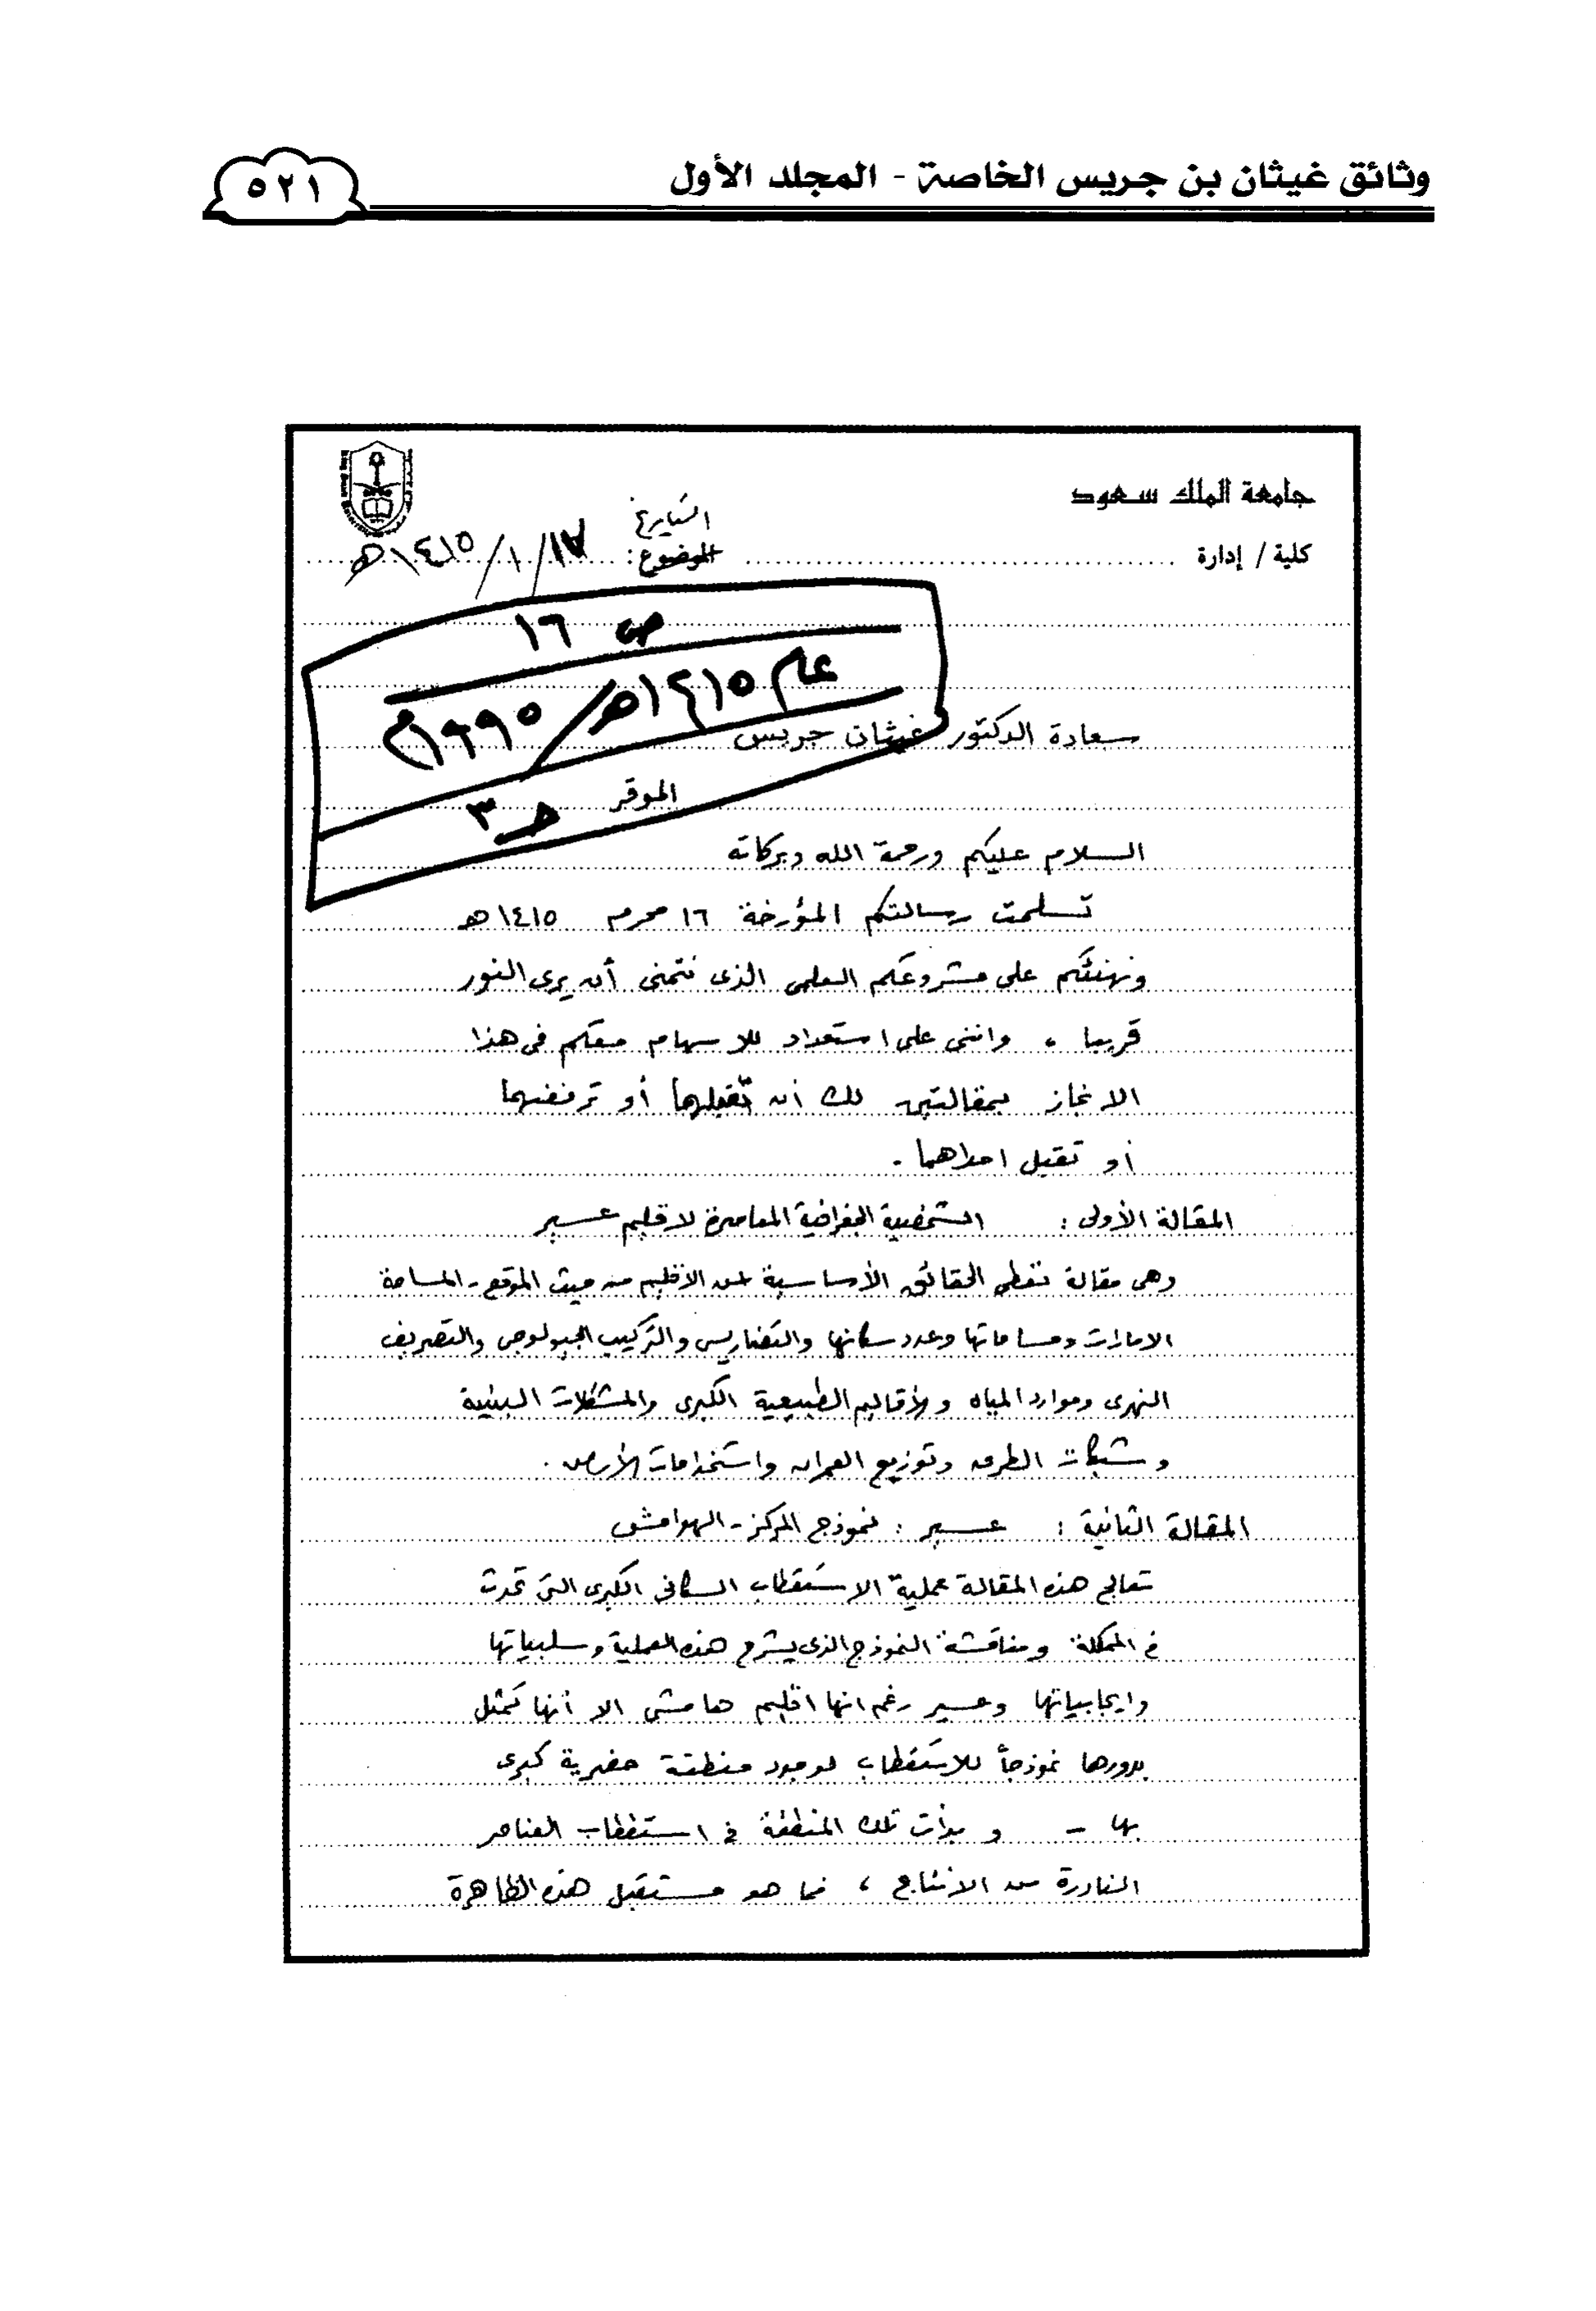 وثائق غيثان بن جريس الخاصة - المجلد الأول
٥٢١
جامعة الملك سعود
التاريخ
كلية / إدارة
الموضوع: ١٧/١/١٤١٥هـ
ص ١٦
عام ١٤١٥هـ/١٩٩٥م
حـ ٣
سعادة الدكتور غيثان جريس
الموقر
السلام عليكم ورحمة الله وبركاته
تسلمت رسالتكم المؤرخة ١٦ محرم ١٤١٥هـ
ونهنئكم على مشروعكم العلمى الذى نتمنى أن يرى النور
قريبا . واننى على استعداد للاسهام معكم فى هذا
الانجاز بمقالتين لك أن تقبلهما أو ترفضهما
أو تقبل احداهما .
المقالة الأولى : الشخصية الجغرافية المعاصرة لاقليم عسير
وهى مقالة تغطى الحقائق الأساسية عن الاقليم من حيث الموقع - المساحة
الامارات ومساحاتها وعدد سكانها والتضاريس والتركيب الجيولوجى والتصريف
النهرى وموارد المياه والأقاليم الطبيعية الكبرى والمشكلات البيئية
وشبكات الطرق وتوزيع العمران واستخدامات الأرض .
المقالة الثانية : عسير : نموذج المركز - الهوامش
تعالج هذه المقالة عملية الاستقطاب السكانى الكبرى التى تحدث
فى المملكة ومناقشة النموذج الذى يشرح هذه العملية وسلبياتها
وايجابياتها وعسير رغم انها اقليم هامشى الا أنها تمثل
بدورها نموذجاً للاستقطاب لوجود منطقة حضرية كبرى
بها - وبدأت تلك المنطقة فى استقطاب العناصر
القادرة على الانتاج ، فما هو مستقبل هذه الظاهرة